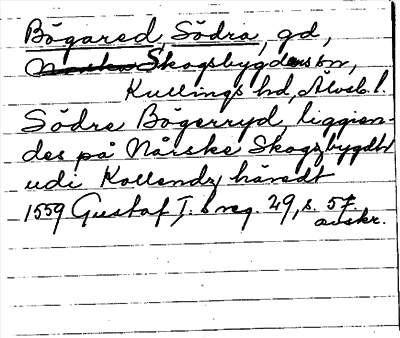 Bögared, Södra, gd,
Norska Skogsbygdens sn,
Kullings hd, Älvsb. l.
Södre Bögerryd, liggien-
des på Nårske Skogzbygdh
udi Kollendz häredt
1559 Gustaf I:s reg. 29, s. 57.
avskr.